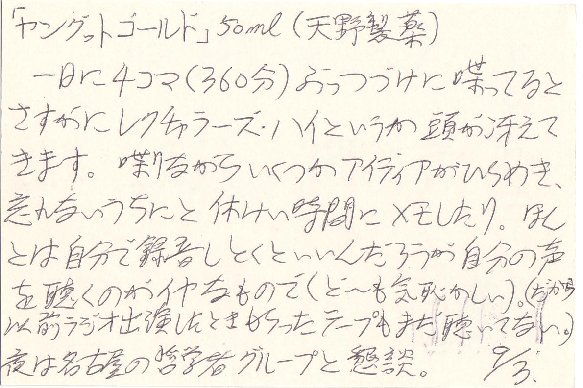 「ヤングットゴールド」50ml (天野製薬)
一日に4コマ(360分)ぶっつづけに喋ってると
さすがにレクチャラーズ・ハイというか頭が冴えて
きます。喋りながらいくつかアイディアがひらめき、
忘れないうちにと休けい時間にメモしたり。ほん
とは自分で録音しとくといいんだろうが自分の声
を聴くのがイヤなもので(ど〜も気恥かしい)。(だから
以前ラジオ出演したときもらったテープもまだ聴いてない。)
夜は名古屋の哲学者グループと懇談。 9/3.